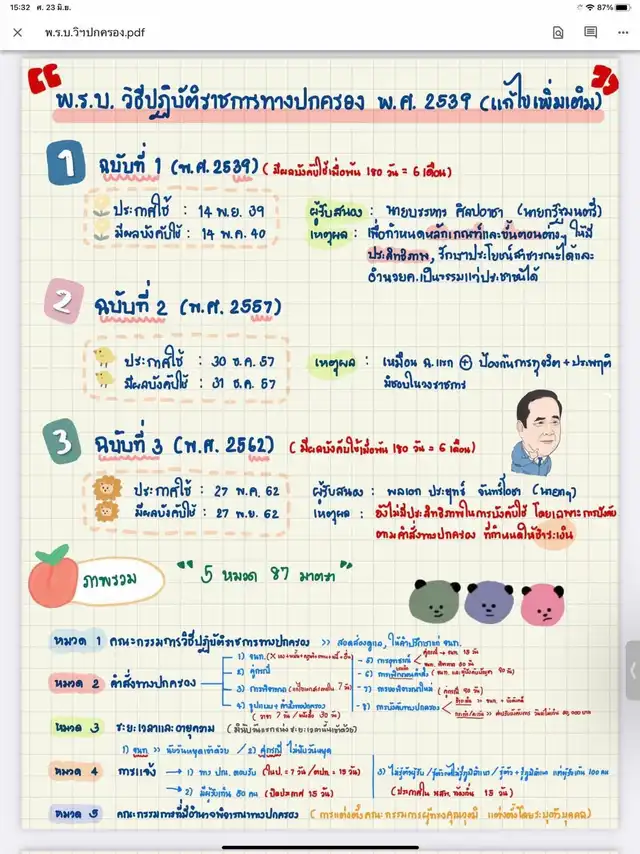 15:32 ศ. 23 มิ.ย.
87%
พ.ร.บ.วิฯปกครอง.pdf
พ.ร.บ. วิธีปฏิบัติราชการทางปกครอง พ.ศ. 2539 (แก้ไขเพิ่มเติม)
1 ฉบับที่ 1 (พ.ศ. 2539) (มีผลบังคับใช้เมื่อพ้น 180 วัน = 6 เดือน)
ประกาศใช้ : 14 พ.ย. 39
มีผลบังคับใช้ : 14 พ.ค. 40
ผู้รับสนอง : นายบรรหาร ศิลปอาชา (นายกรัฐมนตรี)
เหตุผล : เพื่อกำหนดหลักเกณฑ์และขั้นตอนต่างๆ ให้มี
ประสิทธิภาพ, รักษาประโยชน์สาธารณะได้และ
อำนวยค.เป็นธรรมแก่ประชาชนได้
2 ฉบับที่ 2 (พ.ศ. 2557)
ประกาศใช้ : 30 ธ.ค. 57
มีผลบังคับใช้ : 31 ธ.ค. 57
เหตุผล : เหมือน ฉ.แรก + ป้องกันการทุจริต + ประพฤติ
มิชอบในวงราชการ
3 ฉบับที่ 3 (พ.ศ. 2562) (มีผลบังคับใช้เมื่อพ้น 180 วัน = 6 เดือน)
ประกาศใช้ : 27 พ.ค. 62
มีผลบังคับใช้ : 27 พ.ย. 62
ผู้รับสนอง : พลเอก ประยุทธ์ จันทร์โอชา (นายกฯ)
เหตุผล : ยังไม่มีประสิทธิภาพในการบังคับใช้ โดยเฉพาะการบังคับ
ตามคำสั่งทางปกครอง ที่กำหนดให้ชำระเงิน
ภาพรวม "5 หมวด 87 มาตรา"
หมวด 1 คณะกรรมการวิธีปฏิบัติราชการทางปกครอง >> สอดส่องดูแล, ให้คำปรึกษาแก่ จนท.
หมวด 2 คำสั่งทางปกครอง
1) จนท.
2) คู่กรณี
3) การพิจารณา
4) รูปแบบ + คำสั่งทางปกครอง
(วาจา 7 วัน / หนังสือ 30 วัน)
5) การอุทธรณ์
6) การเพิกถอนคำสั่ง
7) การขอพิจารณาใหม่ (คู่กรณี 90 วัน)
8) การบังคับทางปกครอง
หมวด 3 ระยะเวลาและอายุความ (มิให้นับวันแรกแห่งระยะเวลานั้นเข้าด้วย)
1) จนท. >> นับวันหยุดเข้าด้วย / 2) คู่กรณี ไม่นับวันหยุด
หมวด 4 การแจ้ง
1) ทาง ปณ. ตอบรับ (ในปท. = 7 วัน / ตปท. = 15 วัน)
2) มีผู้รับเกิน 50 คน (ปิดประกาศ 15 วัน)
3) ไม่รู้ตัวผู้รับ / รู้ตัวแต่ไม่รู้ภูมิลำเนา / รู้ตัว + รู้ภูมิลำเนา แต่ผู้รับเกิน 100 คน
(ประกาศใน นสพ. ท้องถิ่น 15 วัน)
หมวด 5 คณะกรรมการที่มีอำนาจพิจารณาทางปกครอง (การแต่งตั้งคณะกรรมการผู้ทรงคุณวุฒิ แต่งตั้งโดยระบุตัวบุคคล)